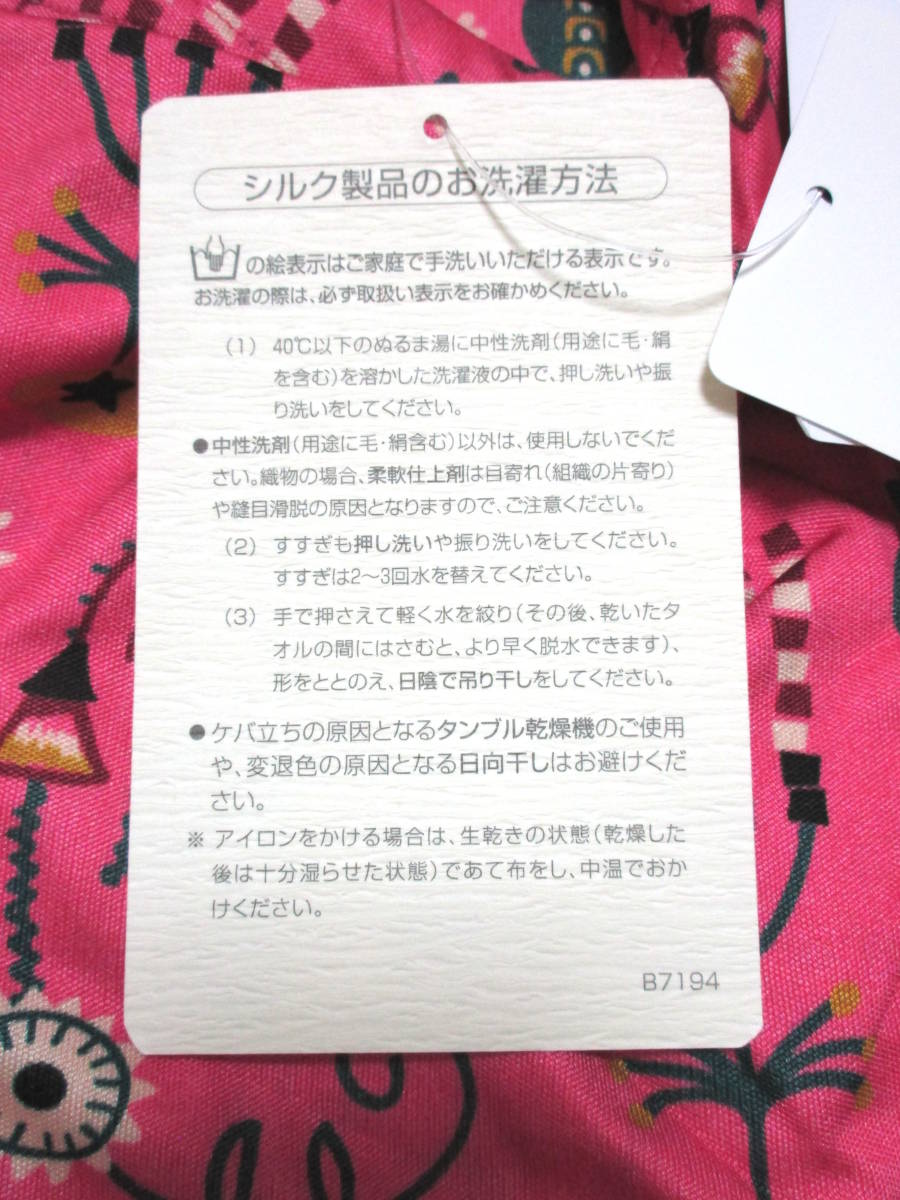 シルク製品のお洗濯方法
の絵表示はご家庭で手洗いいただける表示です。
お洗濯の際は、必ず取扱い表示をお確かめください。
(1) 40℃以下のぬるま湯に中性洗剤(用途に毛・絹
を含む)を溶かした洗濯液の中で、押し洗いや振
り洗いをしてください。
●中性洗剤(用途に毛・絹含む)以外は、使用しないでくだ
さい。織物の場合、柔軟仕上剤は目寄れ(組織の片寄り)
や縫目滑脱の原因となりますので、ご注意ください。
(2) すすぎも押し洗いや振り洗いをしてください。
すすぎは2〜3回水を替えてください。
(3) 手で押さえて軽く水を絞り(その後、乾いたタ
オルの間にはさむと、より早く脱水できます)、
形をととのえ、日陰で吊り干しをしてください。
●ケバ立ちの原因となるタンブル乾燥機のご使用
や、変退色の原因となる日向干しはお避けくだ
さい。
※ アイロンをかける場合は、生乾きの状態(乾燥した
後は十分湿らせた状態)であて布をし、中温でおか
けください。
B7194